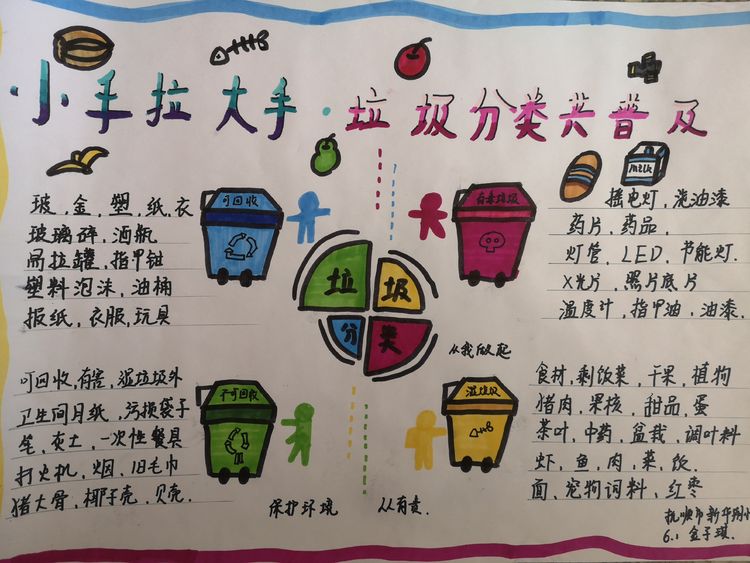 ·小手拉大手·垃圾分类共普及
milk
可回收
有毒垃圾
玻,金,塑,纸,衣
玻璃碎,酒瓶
易拉罐,指甲钳
塑料泡沫,油桶
报纸,衣服,玩具
摇电灯,泡油漆
药片,药品.
灯管,LED,节能灯.
X光片,照片底片
温度计,指甲油,油漆.
垃圾
分类
从我做起
可回收,有害,湿垃圾外
卫生间用纸,污损袋子
笔,灰土,一次性餐具
打火机,烟,旧毛巾
猪大骨,椰子壳,贝壳.
不可回收
湿垃圾
食材,剩饭菜,干果,植物
猪肉,果核,甜品,蛋
茶叶,中药,盆栽,调叶料
虾,鱼,肉,菜,饭.
面,宠物词料,红枣
保护环境
人人有责.
抚顺市新华朝小
6.1 金子琪.